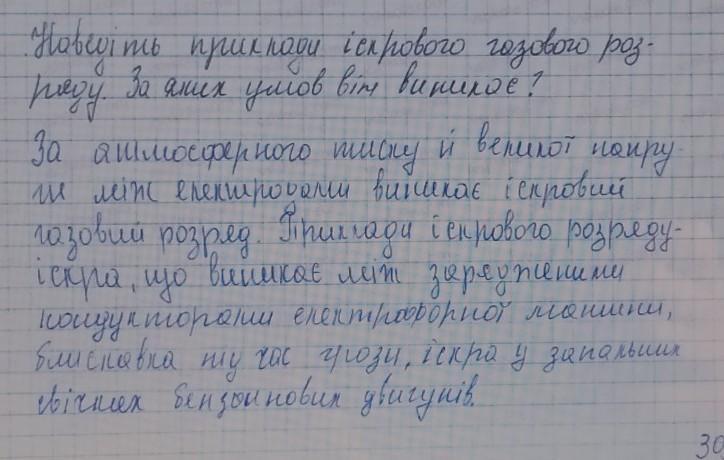 Наведіть приклади іскрового газового роз-
ряду. За яких умов він виникає?
За атмосферного тиску й великої напру-
ги між електродами виникає іскровий
газовий розряд. Приклади іскрового розряду-
іскра, що виникає між зарядженими
кондукторами електрофорної машини,
блискавка під час грози, іскра у запальних
свічках бензинових двигунів.
30